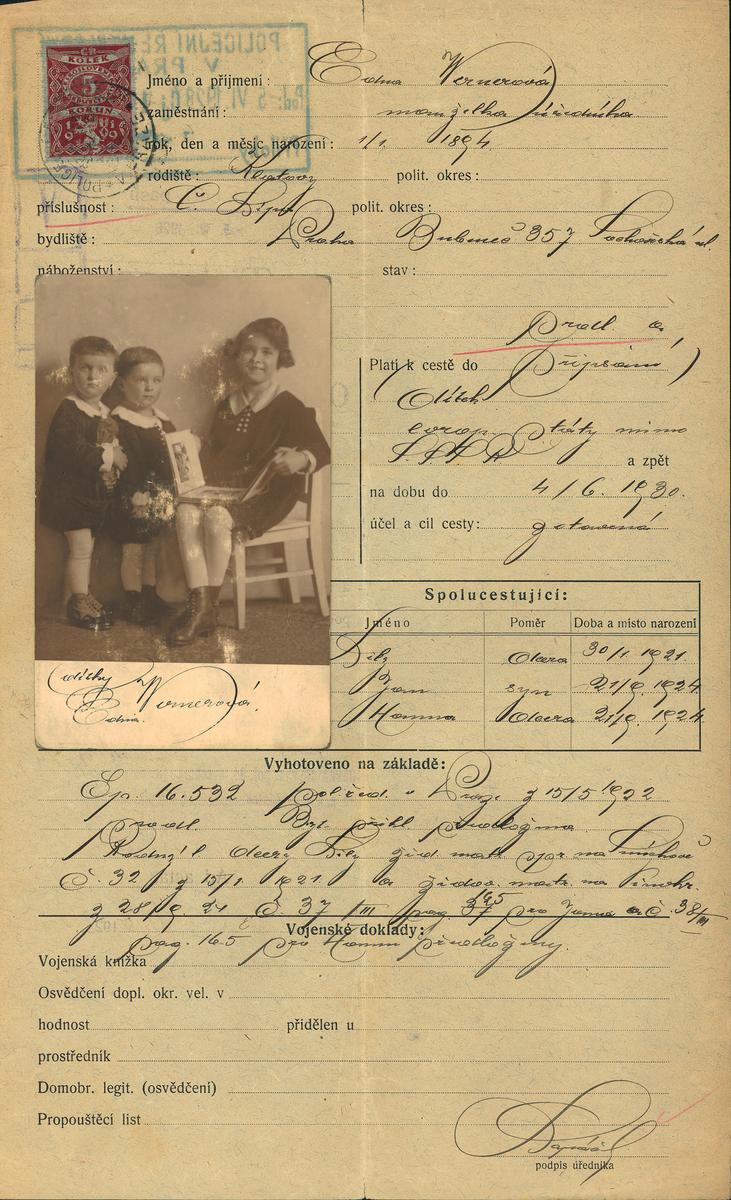 KOLEK
5
KORUN
POLICEJNÍ
V PRA
Jméno a příjmení: Edna Wernerová
zaměstnání: manželka úředníka
rok, den a měsíc narození: 1/1. 1894.
rodiště: Klatovy polit. okres:
příslušnost: Č. Lípa polit. okres:
bydliště: Praha Bubeneč 357
náboženství: stav:
prodl. a
Platí k cestě do připsání
dítek
evrop. státy mimo
SSSR a zpět
na dobu do 4/6. 1930.
účel a cíl cesty: zotavená
Spolucestující:
Jméno Poměr Doba a místo narození
Lily dcera 30/1. 1921.
syn 21/9. 1924.
Hanna dcera 21/9. 1924.
dítky
Edna Wernerová.
Vyhotoveno na základě:
16.532 pol. řed. v Praze z 15/5 1922
prodl. Byt. přihl. předložena.
dcery Lily žid. matr. na Smíchově
č. 32 z 15/1. 1921. a židov. matr. na Vinohr.
z 28/9. 24 č. 37/III pag. 165 pro a č. 38/III
Vojenské doklady:
pag. 165 pro Hannu předloženy.
Vojenská knížka
Osvědčení dopl. okr. vel. v
hodnost přidělen u
prostředník
Domobr. legit. (osvědčení)
Propouštěcí list
podpis úředníka